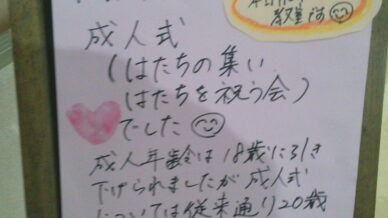 成人式
(はたちの集い
はたちを祝う会)
でした
成人年齢は18歳に引き
下げられましたが成人式
については従来通り20歳